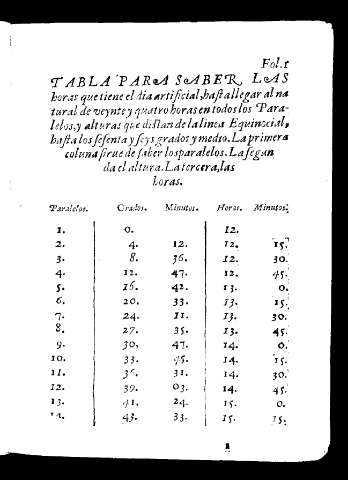 Fol. 1
TABLA PARA SABER LAS
horas que tiene el dia artificial, hasta llegar al na
tural de veynte y quatro horas en todos los Para-
lelos, y alturas que distan de la linea Equinocial,
hasta los sesenta y seys grados y medio. La primera
coluna sirue de saber los paralelos. La segun
da el altura. La tercera, las
horas.
Paralelos. Grados. Minutos. Horas. Minutos.
1. 0. 12.
2. 4. 12. 12. 15.
3. 8. 36. 12. 30.
4. 12. 47. 12. 45.
5. 16. 42. 13. 0.
6. 20. 33. 13. 15.
7. 24. 11. 13. 30.
8. 27. 35. 13. 45.
9. 30. 47. 14. 0.
10. 33. 45. 14. 15.
11. 36. 31. 14. 30.
12. 39. 03. 14. 45.
13. 41. 24. 15. 0.
14. 43. 33. 15. 15.
1